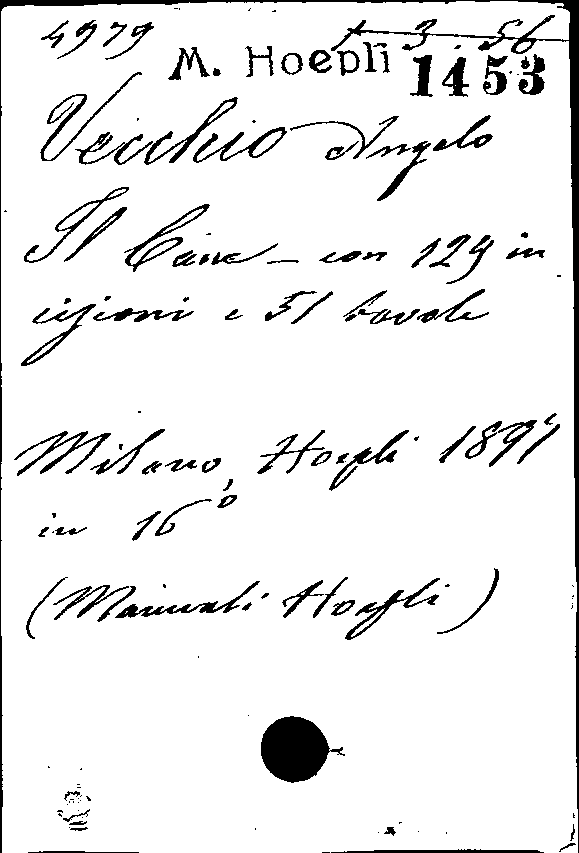 4979 t 3. 56
M. Hoepli 1453
Vecchio Angelo
Il Cane - con 129 in
cisioni e 51 tavole
Milano, Hoepli 1897
in 16°
(Manuali Hoepli)